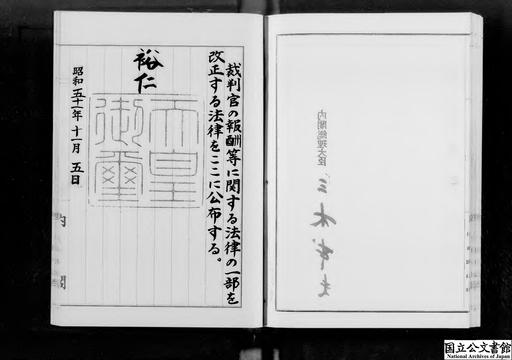 裁判官の報酬等に関する法律の一部を
改正する法律をここに公布する。
裕仁
天皇
御璽
昭和五十一年十一月五日
内閣
内閣総理大臣
三木武夫
国立公文書館
National Archives of Japan